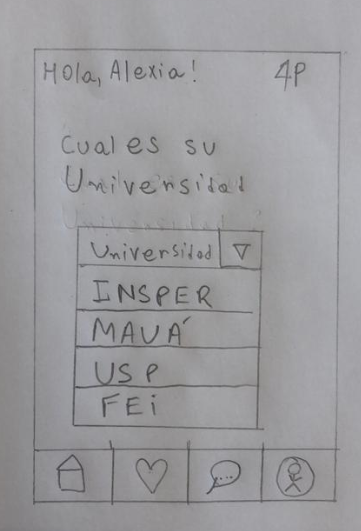 Hola, Alexia! 4P
Cual es su
Universidad
Universidad
INSPER
MAUÁ
USP
FEi